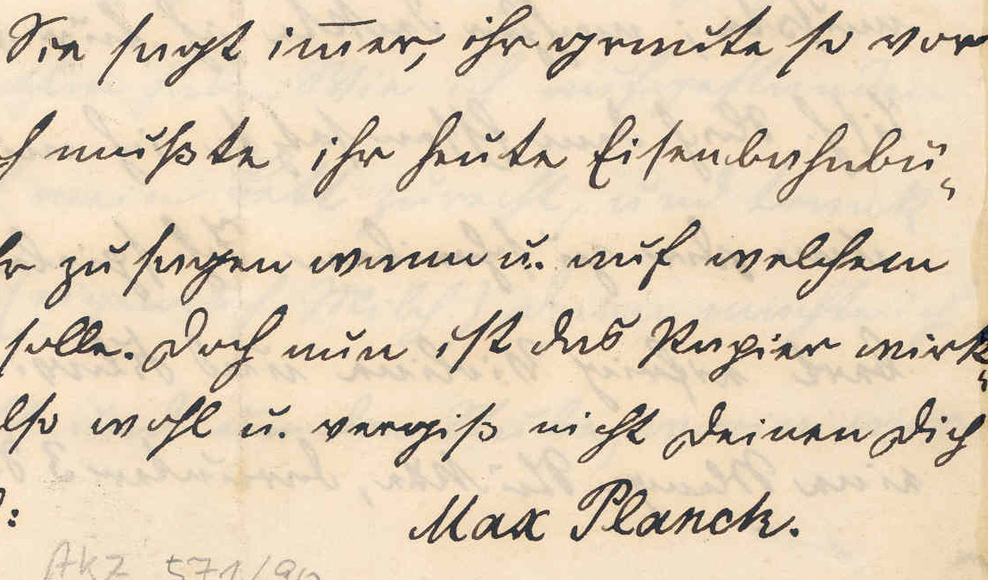 Sie sagt im̅er, ihr graute so vor
h mußte ihr heute Eisenbahnbü„
hr zu sagen wann u. auf welchem
solle. Doch nun ist das Papier wirk„
lso wohl u. vergiß nicht Deinen Dich
: Max Planck.
AkZ 571/90